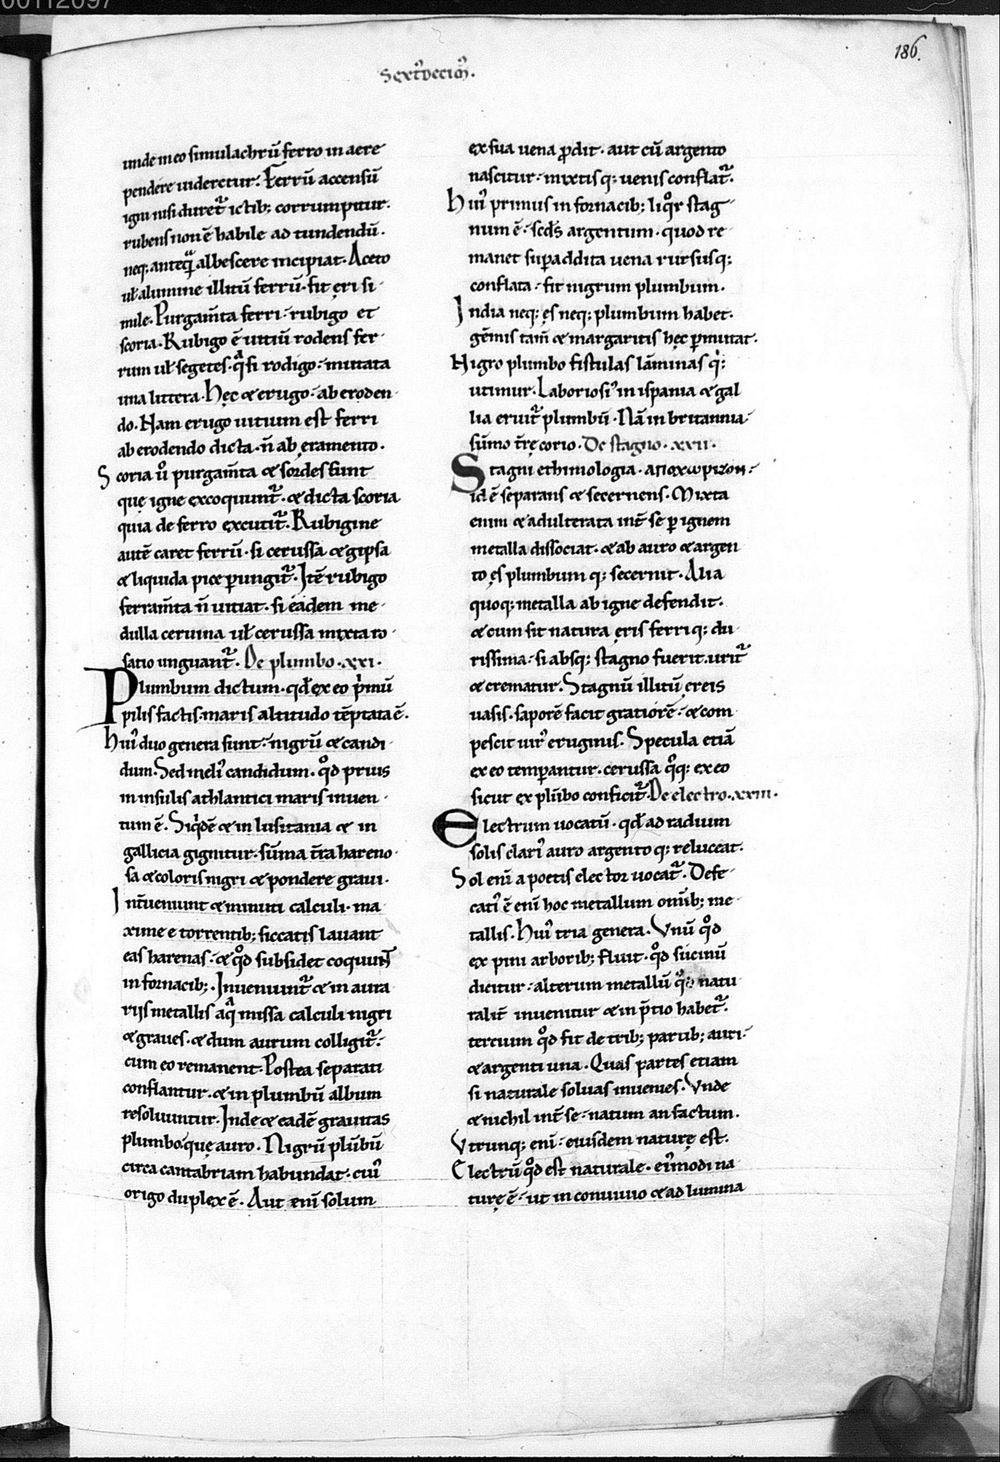 00112097
186.
Sextꝰdecimꝰ.
unde in eo simulachrū ferro in aere
pendere uideretur. Ferrū accensū
igni nisi duretᷣ ictib; corrumpitur.
rubens non ē habile ad tundendū.
neq; anteq̄ albescere incipiat. Aceto
uł alumine illitū ferrū. fit ęri si-
mile. Purgam̄ta ferri. rubigo et
scoria. Rubigo ē uitiū rodens fer-
rum uł segetes. q̄si rodigo. mutata
una littera. Hęc & erugo. ab eroden-
do. Nam erugo uitium est ferri
ab erodendo dicta. n̄ ab ęramento.
Scoria ů purgam̄ta & sordes sunt
quę igne excoquuntᷣ. & dicta scoria
quia de ferro excutitᷣ. Rubigine
autē caret ferrū. si cerussa & gipsa
& liquida pice ꝑungitᷣ. Itē rubigo
ferram̄ta n̄ uitiat. si eadem me-
dulla ceruina uł cerussa mixta ro-
satio unguantᷣ. De plumbo. xxi.
Plumbum dictum. qđ ex eo p̓mū
pilis factis. maris altitudo tēptata ē.
Huiꝰ duo genera sunt. nigrū & candi-
dum. Sed meliꝰ candidum. qđ prius
in insulis athlantici maris inuen-
tum ē. Siq̓dē & in lusitania & in
gallicia gignitur. sūma t̄ra hareno-
sa & coloris nigri & pondere graui.
Int̄ueniunt & minuti calculi. ma-
xime e torrentib; siccatis lauant
eas harenas. & qđ subsidet coquunt
in fornacib;. Inueniuntᷣ & in aura-
rijs metallis aq̄ missa calculi nigri
& graues. & dum aurum colligitᷣ.
cum eo remanent. Postea separati
conflantur. & in plumbū album
resoluuntur. Inde & eadē grauitas
plumbo. quę auro. Nigrū plūbū
circa cantabriam habundat. cuiꝰ
origo duplex ē. Aut enī solum
ex sua uena ꝓdit. aut cū argento
nascitur. mixtisq; uenis conflatᷣ.
Huiꝰ primus in fornacib; liqͦr stag-
num ē. scd̄s argentum. quod re-
manet suꝑaddita uena rursusq;
conflata. fit nigrum plumbum.
India neq; ęs neq; plumbum habet.
gēmis tam̄ & margaritis hęc ꝑmutat.
Nigro plumbo fistulas lāminasq̓;
utimur. Laboriosiꝰ in ispania & gal-
lia eruitᷣ plumbū. Nā in britannia
sūmo t̄rę corio. De stagno. xxii.
Stagni ethimologia. αποχωριζοn.
id ē separans & secernens. Mixta
enim & adulterata int̄ se ꝑ ignem
metalla dissociat. & ab auro & argen-
to ęs plumbumq; secernit. Alia
quoq; metalla ab igne defendit.
& cum sit natura ęris ferriq; du-
rissima. si absq; stagno fuerit. uritᷣ
& crematur. Stagnū illitū ęreis
uasis. saporē facit gratiorē. & com-
pescit uirꝰ eruginis. Specula etiā
ex eo temꝑantur. cerussa qͦq; ex eo
sicut ex plūbo conficitᷣ. De electro. xxiii.
Electrum uocatū. qđ ad radium
solis clariꝰ auro argentoq; reluceat.
Sol enī a poetis elector uocatᷣ. Defe-
catiꝰ ē enī hoc metallum omīb; me-
tallis. Huiꝰ tria genera. Vnū qđ
ex pini arborib; fluit. qđ sucinū
dicitur. alterum metallū qđ natu-
ralit̄ inuenitur & in p̄tio habetᷣ.
tercium qđ fit de trib; partib; auri.
& argenti una. Quas partes etiam
si naturale soluas inuenies. Vnde
& nichil int̄ se. natum an factum.
Vtrunq; enī. eiusdem naturę est.
Electrū qđ est naturale. eiꝰmodi na-
turę ē. ut in conuiuio & ad lumina